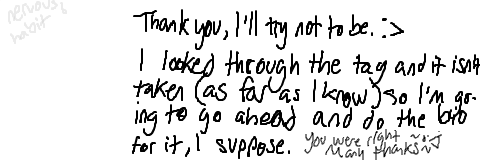 nervous
habit
Thank you, I'll try not to be. :>
I looked through the tag and it isn't
taken (as far as I know) so I'm go-
ing to go ahead and do the bio
for it, I suppose. You were right ~
Many thanks~